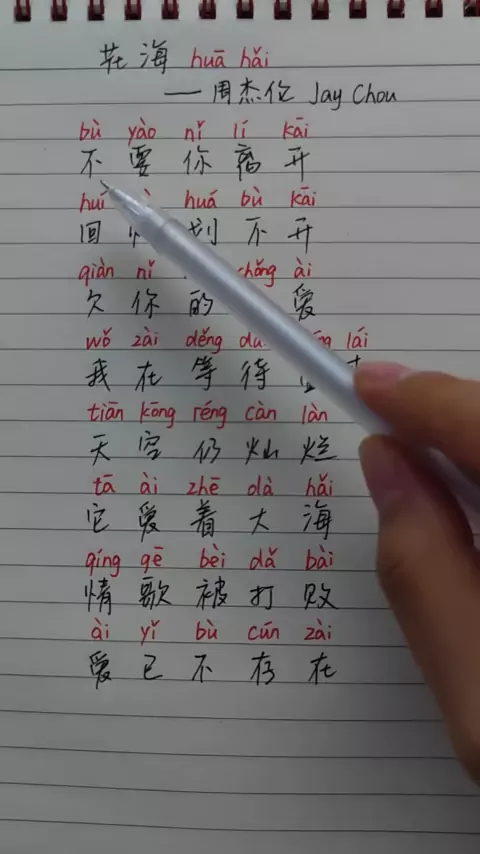 花海 huā hǎi
——周杰伦 Jay Chou
bù yào nǐ lí kāi
不要你离开
huí huá bù kāi
回划不开
qiàn nǐ chǎng ài
欠你的爱
wǒ zài děng lái
我在等待
tiān kōng réng càn làn
天空仍灿烂
tā ài zhē dà hǎi
它爱着大海
qíng gē bèi dǎ bài
情歌被打败
ài yǐ bù cún zài
爱已不存在